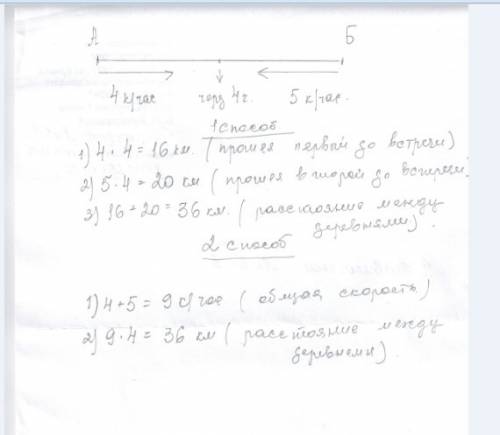 А Б
4 к/час через 4 ч. 5 к/час.
1 способ
1) 4 · 4 = 16 км. (прошел первый до встречи)
2) 5 · 4 = 20 км (прошел второй до встречи)
3) 16 + 20 = 36 км. (расстояние между
деревнями).
2 способ
1) 4 + 5 = 9 к/час (общая скорость)
2) 9 · 4 = 36 км (расстояние между
деревнеми).